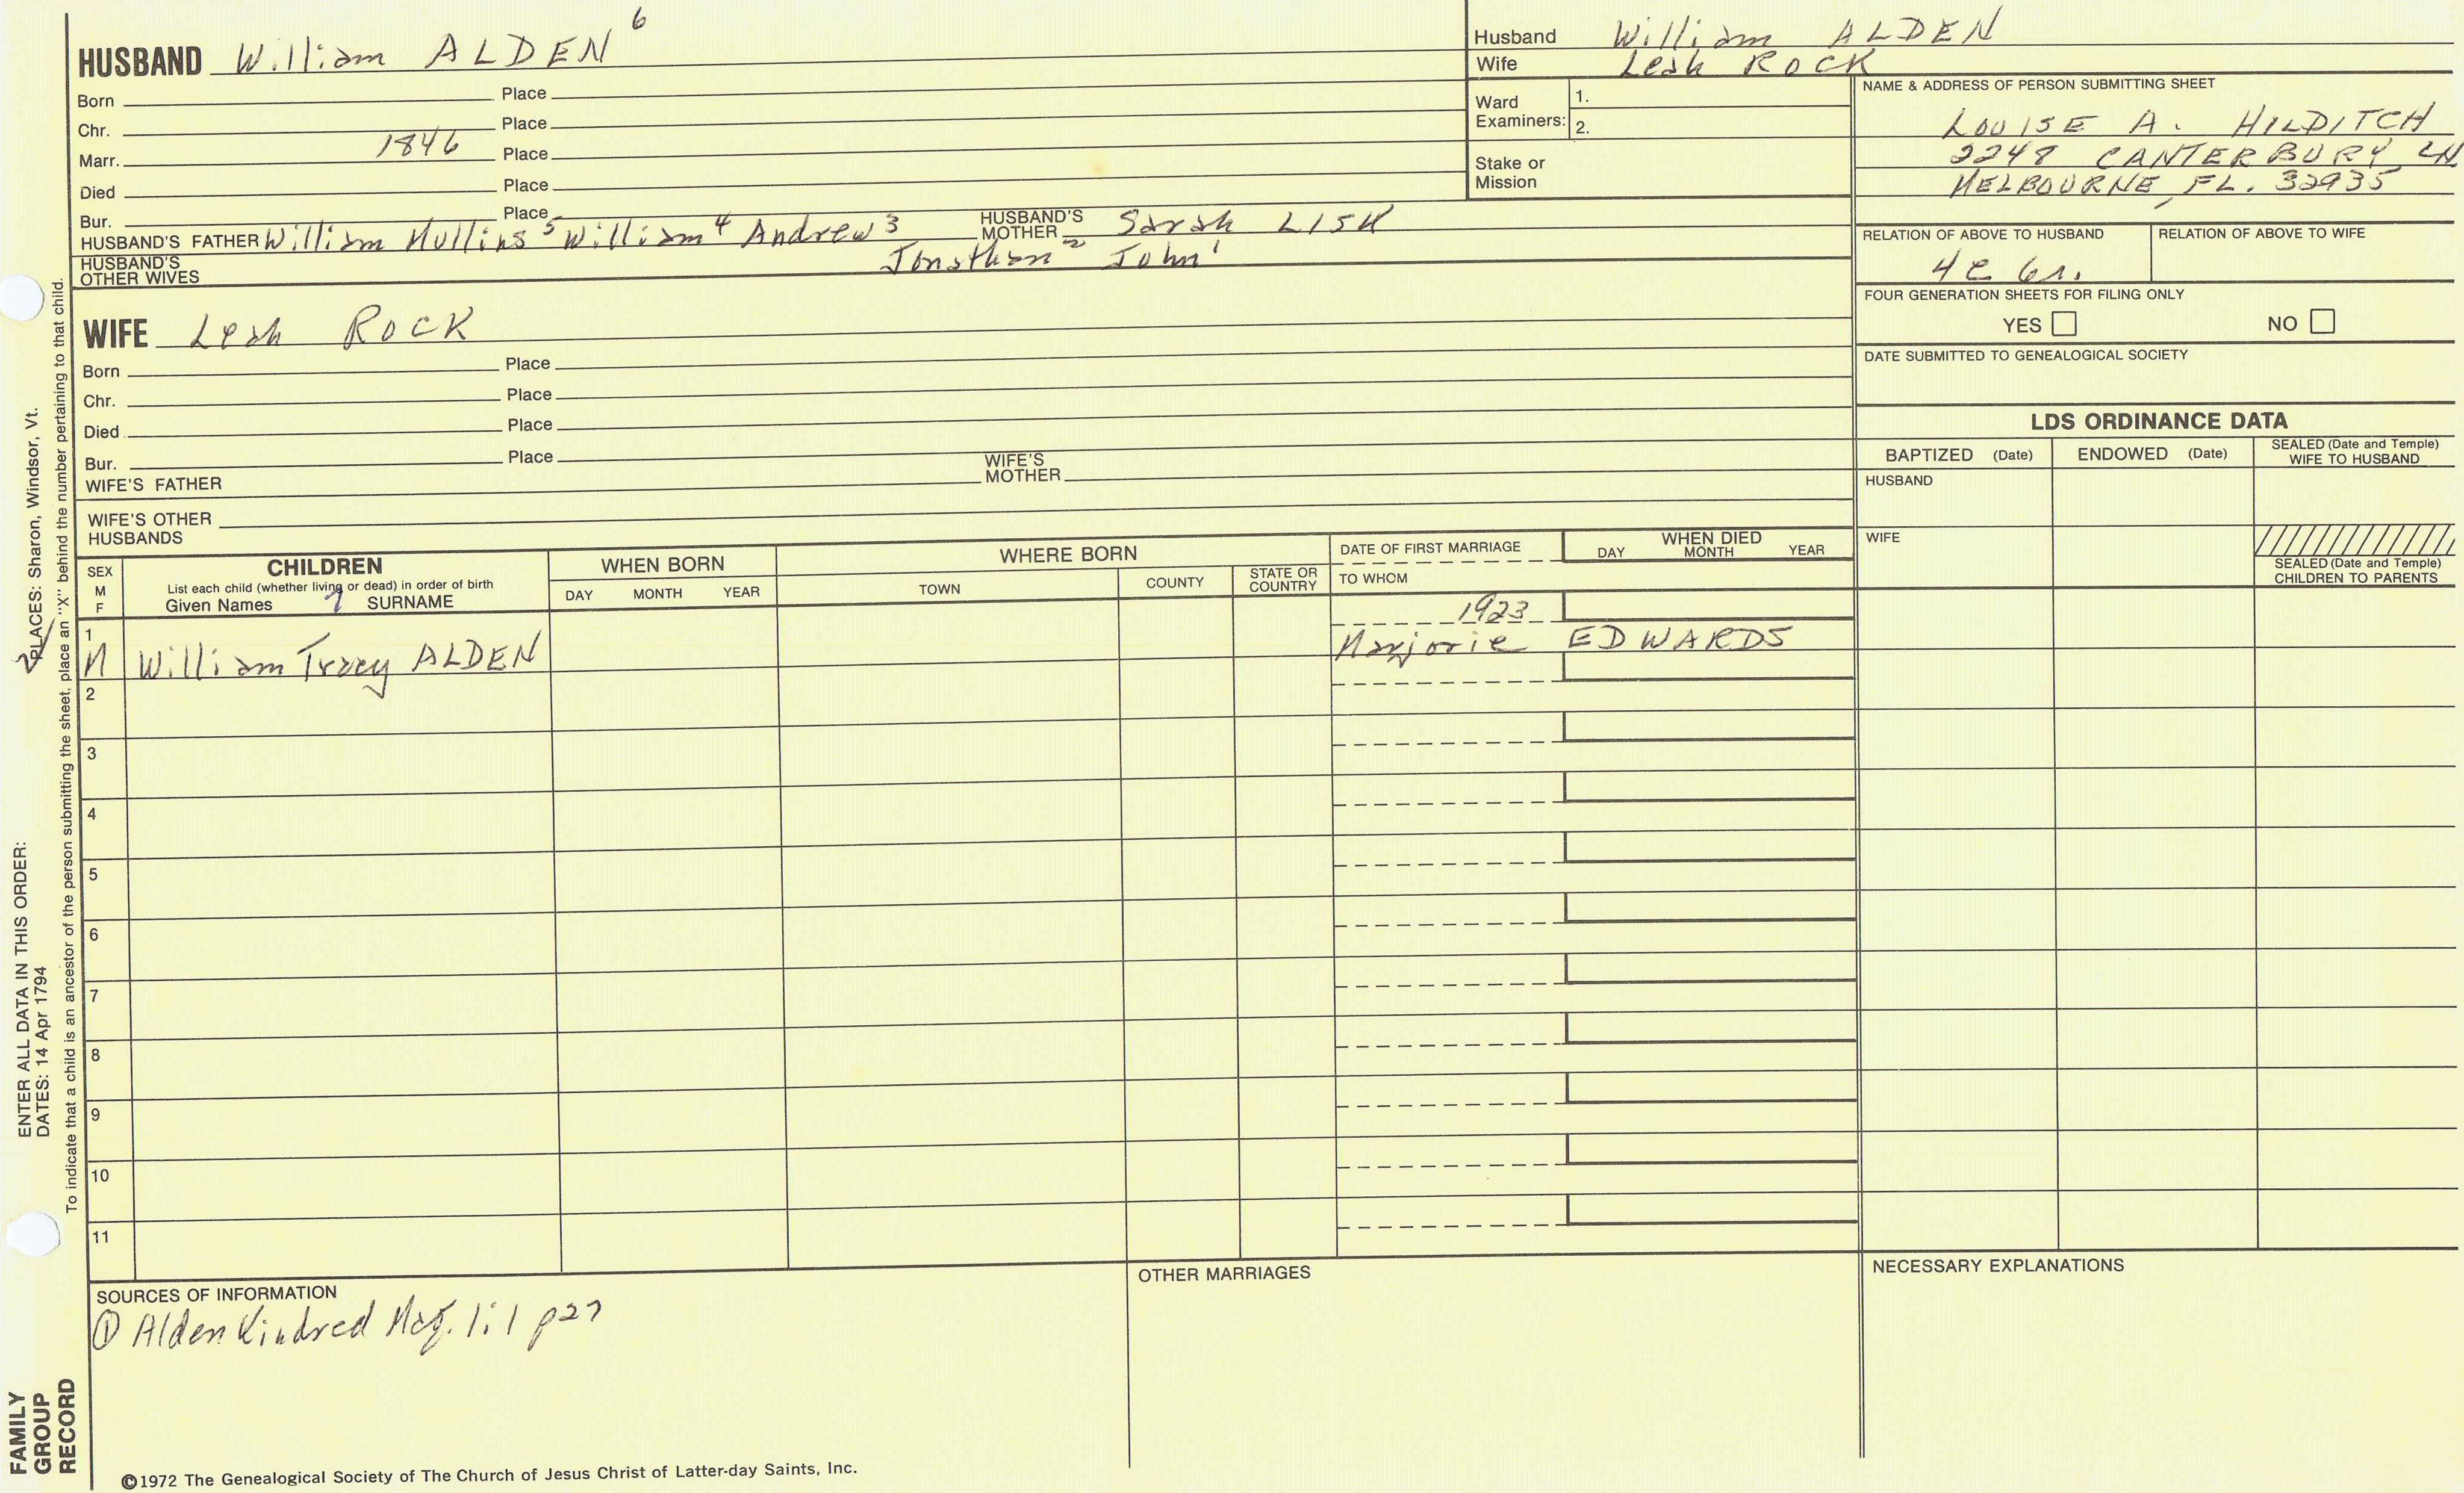 HUSBAND William ALDEN 6
Born Place
Chr. Place
Marr. 1846 Place
Died Place
Bur. Place
HUSBAND'S FATHER William Mullins 5 William 4 Andrew 3 HUSBAND'S MOTHER Sarah LISK
Jonathan 2 John 1
HUSBAND'S OTHER WIVES
Husband William ALDEN
Wife Leah ROCK
Ward Examiners: 1.
2.
Stake or Mission
NAME & ADDRESS OF PERSON SUBMITTING SHEET
LOUISE A. HILDITCH
2248 CANTERBURY LN
MELBOURNE, FL. 32935
RELATION OF ABOVE TO HUSBAND RELATION OF ABOVE TO WIFE
4c 6r.
FOUR GENERATION SHEETS FOR FILING ONLY
YES NO
DATE SUBMITTED TO GENEALOGICAL SOCIETY
WIFE Leah ROCK
Born Place
Chr. Place
Died Place
Bur. Place
WIFE'S FATHER WIFE'S MOTHER
WIFE'S OTHER HUSBANDS
LDS ORDINANCE DATA
BAPTIZED (Date) ENDOWED (Date) SEALED (Date and Temple) WIFE TO HUSBAND
HUSBAND
WIFE
SEALED (Date and Temple) CHILDREN TO PARENTS
SEX M F
CHILDREN
List each child (whether living or dead) in order of birth
Given Names 7 SURNAME
WHEN BORN
DAY MONTH YEAR
WHERE BORN
TOWN COUNTY STATE OR COUNTRY
DATE OF FIRST MARRIAGE
TO WHOM
WHEN DIED
DAY MONTH YEAR
1923
1 M William Tracy ALDEN Marjorie EDWARDS
2
3
4
5
6
7
8
9
10
11
SOURCES OF INFORMATION
① Alden Kindred Mag. 1:1 p27
OTHER MARRIAGES
NECESSARY EXPLANATIONS
©1972 The Genealogical Society of The Church of Jesus Christ of Latter-day Saints, Inc.
FAMILY GROUP RECORD
ENTER ALL DATA IN THIS ORDER:
DATES: 14 Apr 1794
PLACES: Sharon, Windsor, Vt.
To indicate that a child is an ancestor of the person submitting the sheet, place an "X" behind the number pertaining to that child.